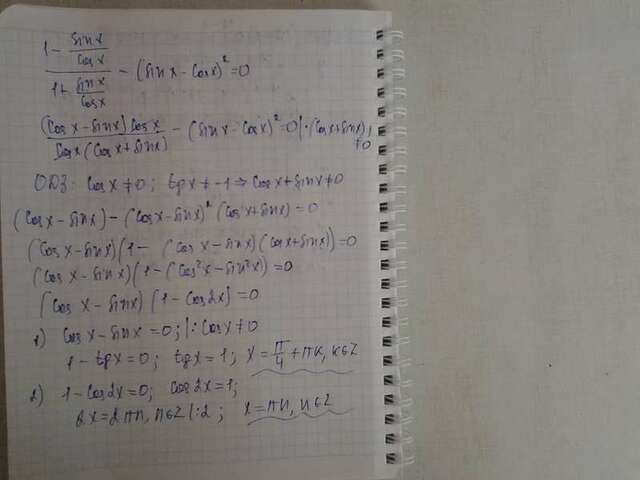 (1 - sin x / cos x) / (1 + sin x / cos x) - (sin x - cos x)² = 0
(cos x - sin x) cos x / cos x (cos x + sin x) - (sin x - cos x)² = 0 | · (cos x + sin x), ≠0
ОДЗ: cos x ≠ 0; tg x ≠ -1 ⇒ cos x + sin x ≠ 0
(cos x - sin x) - (cos x - sin x)² (cos x + sin x) = 0
(cos x - sin x)(1 - (cos x - sin x)(cos x + sin x)) = 0
(cos x - sin x)(1 - (cos² x - sin² x)) = 0
(cos x - sin x)(1 - cos 2x) = 0
1) cos x - sin x = 0; | : cos x ≠ 0
1 - tg x = 0; tg x = 1; x = π/4 + πk, k∈Z
2) 1 - cos 2x = 0; cos 2x = 1;
2x = 2πn, n∈Z | : 2; x = πn, n∈Z